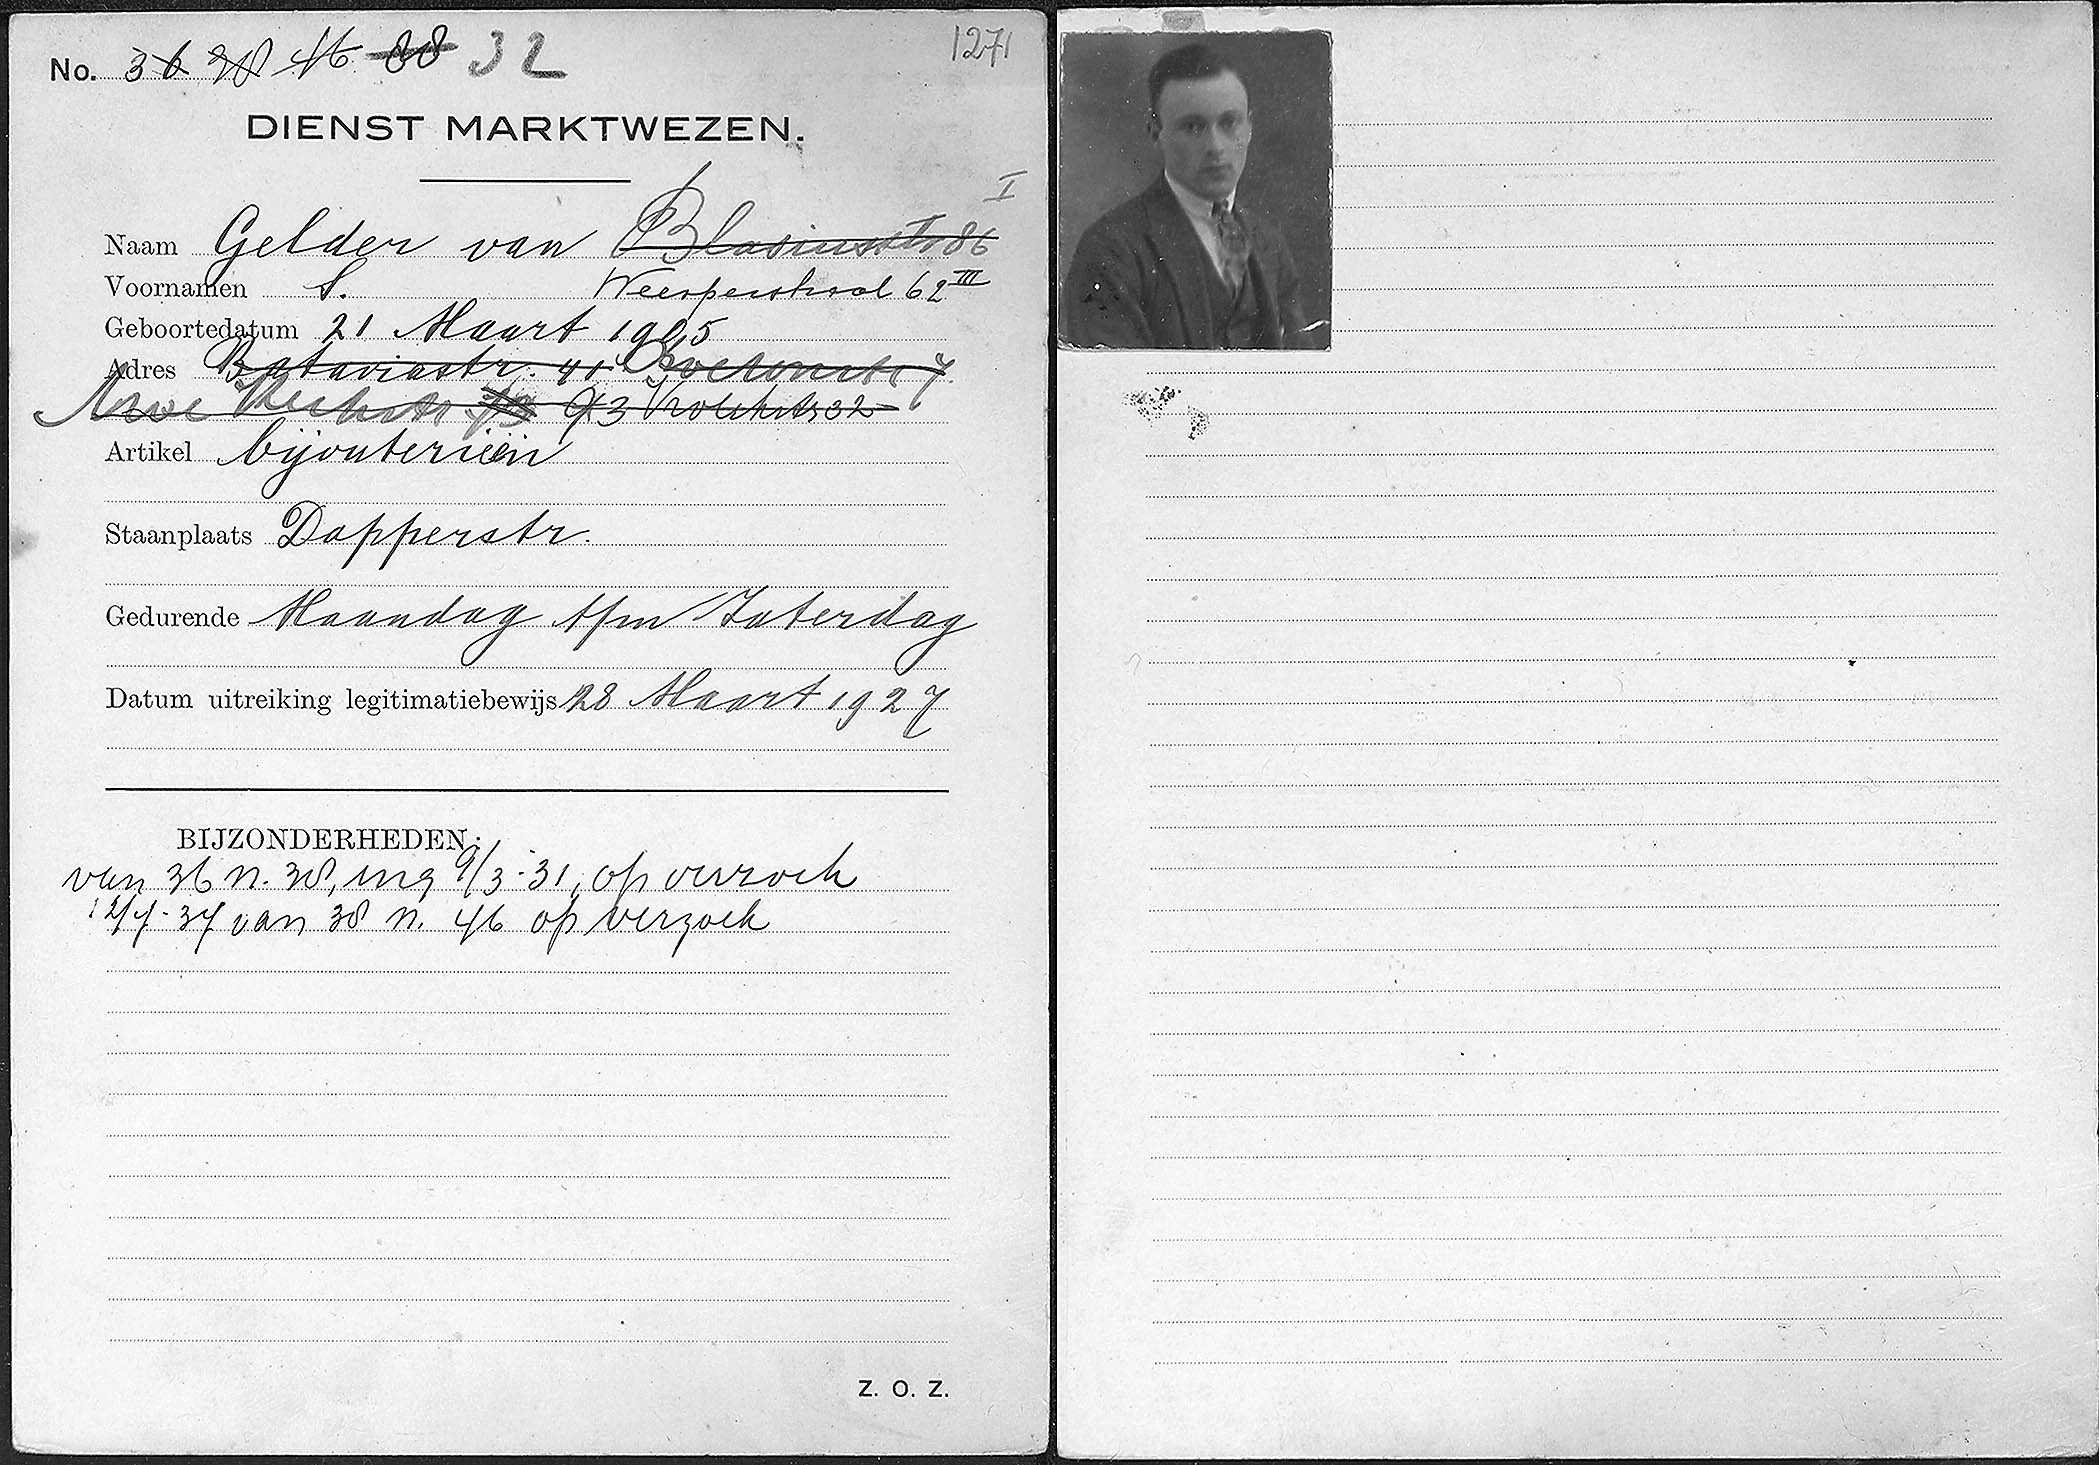 No. 36 38 46 88 32 1271
DIENST MARKTWEZEN.
I
Naam Gelder van Blasiusstr 86
Voornamen S. Weesperstraat 62 III
Geboortedatum 21 Maart 1905
Adres Bataviastr. 41 7
Nwe Kerkstr 93 Krolikstr 32
Artikel bijouteriëen
Staanplaats Dapperstr.
Gedurende Maandag t/m Zaterdag
Datum uitreiking legitimatiebewijs 28 Maart 1927
BIJZONDERHEDEN:
van 36 n. 38, ing 9/3-31, op verzoek
12/4-37 van 38 n. 46 op verzoek
Z. O. Z.